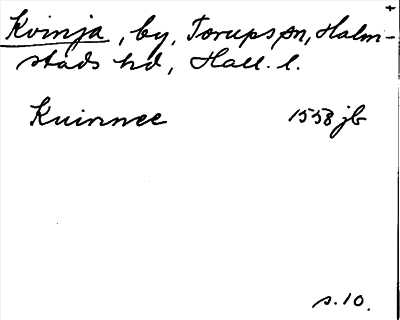 Kvinja, by, Torups sn, Halm-
stads hd, Hall. l.
Kuinnee 1558 jb
s. 10.